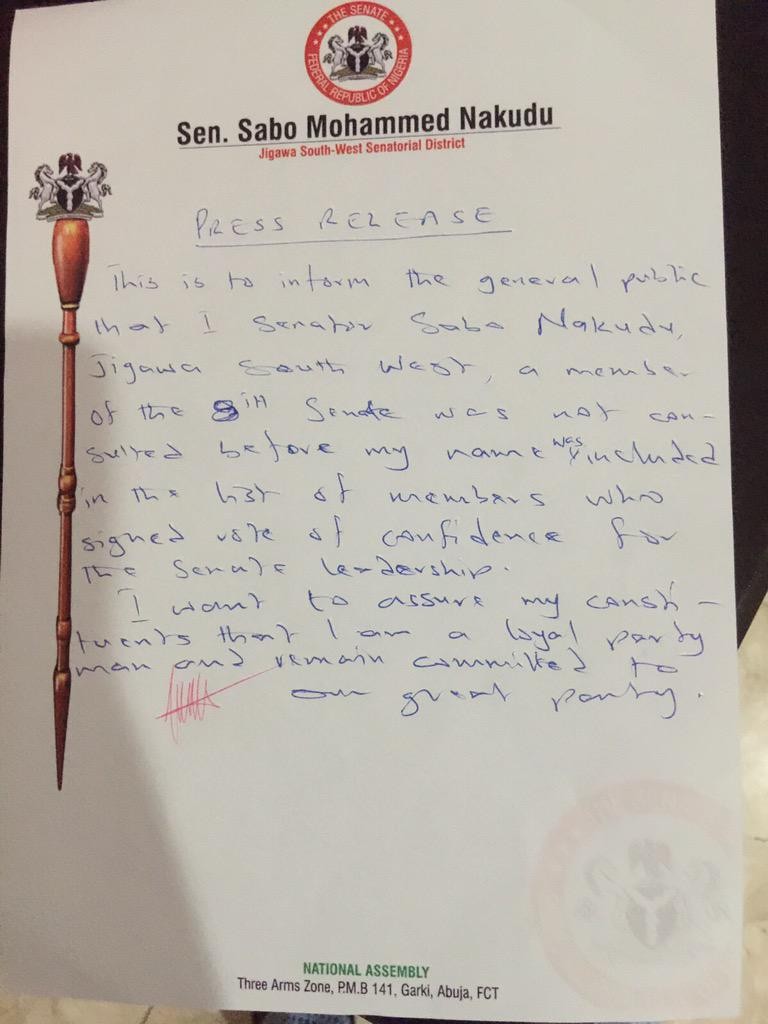 THE SENATE
FEDERAL REPUBLIC OF NIGERIA
Sen. Sabo Mohammed Nakudu
Jigawa South-West Senatorial District
PRESS RELEASE
This is to inform the general public
that I Senator Sabo Nakudu,
Jigawa South West, a member
of the 8th Senate was not con-
sulted before my name was included
in the list of members who
signed vote of confidence for
the Senate leadership.
I want to assure my consti-
tuents that I am a loyal party
man and remain committed to
our great party.
NATIONAL ASSEMBLY
Three Arms Zone, P.M.B 141, Garki, Abuja, FCT